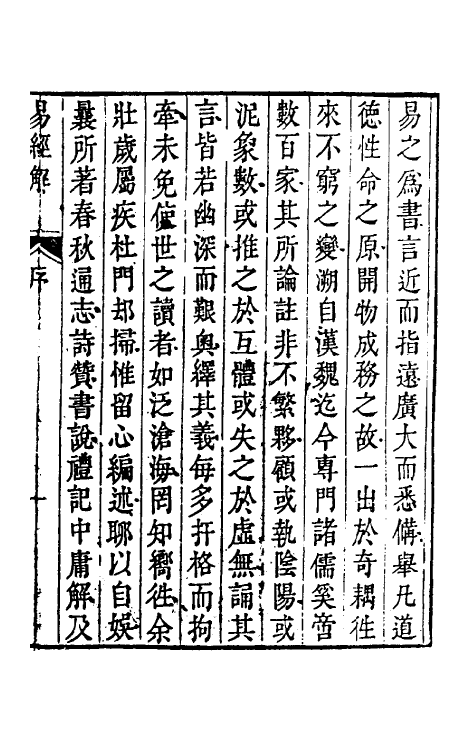 易之爲書言近而指遠廣大而悉備舉凡道
德性命之原開物成務之故一出於奇耦徃
來不窮之變溯自漢魏迄今專門諸儒奚啻
數百家其所論註非不繁夥顧或執陰陽或
泥象數或推之於互體或失之於虛無誦其
言皆若幽深而艱奥繹其義每多扞格而拘
牽未免使世之讀者如泛滄海罔知嚮徃余
壯歲屬疾杜門却掃惟留心編述聊以自娛
曩所著春秋通志詩贊書說禮記中庸解及
易經解
序
一